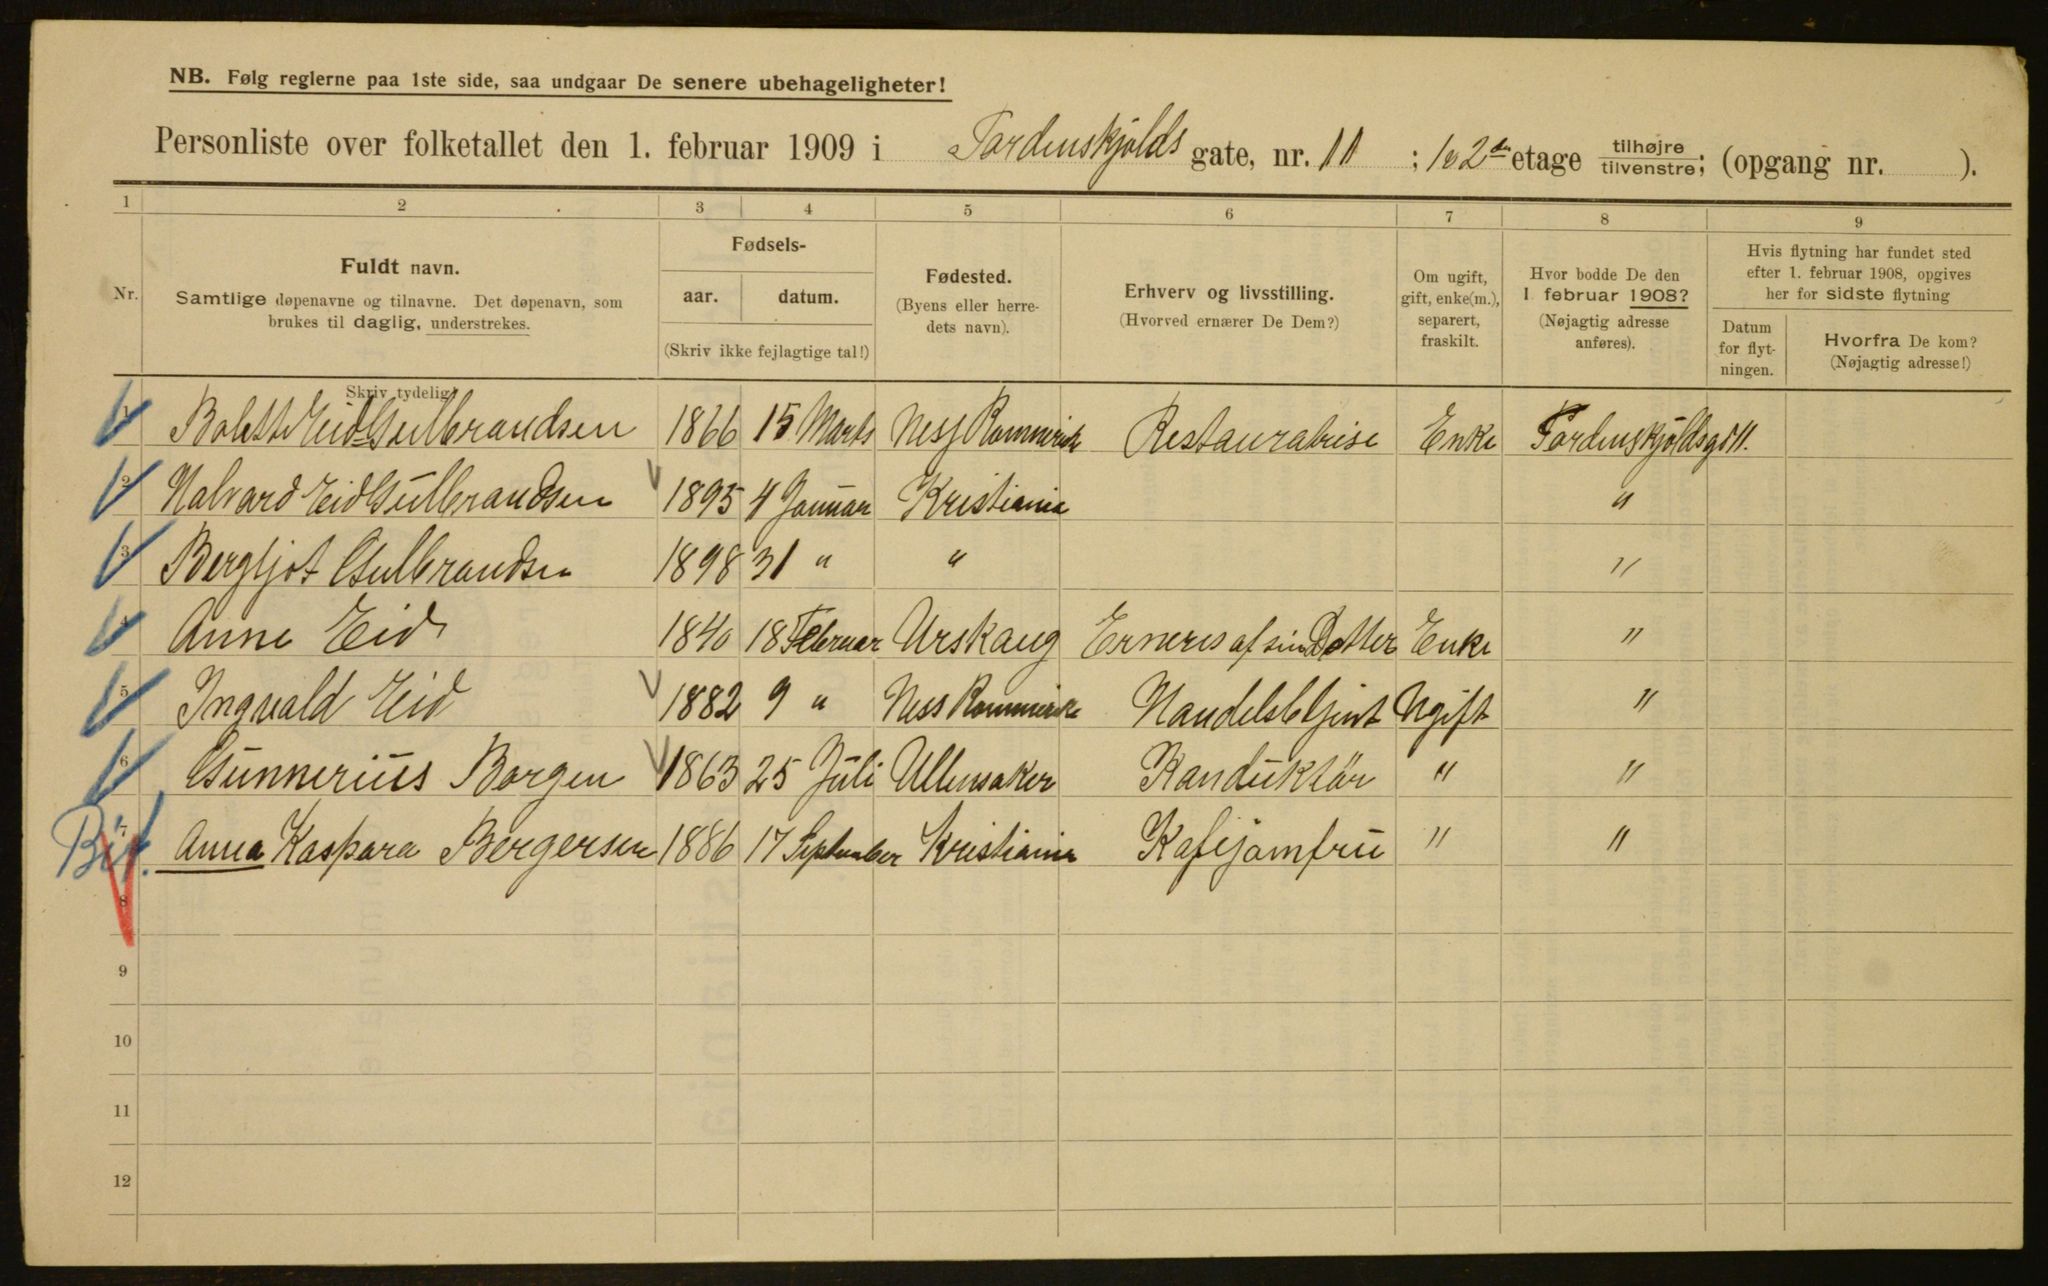 NB. Følg reglerne paa 1ste side, saa undgaar De senere ubehageligheter!
Personliste over folketallet den 1. februar 1909 i Tordenskjolds gate, nr. 11 ; 1 2den etage tilhøjre tilvenstre; (opgang nr. ).
1 2 3 4 5 6 7 8 9
Nr.
Fuldt navn.
Samtlige døpenavne og tilnavne. Det døpenavn, som
brukes til daglig, understrekes.
Skriv tydelig!
Fødsels-
aar. datum.
(Skriv ikke fejlagtige tal!)
Fødested.
(Byens eller herre-
dets navn).
Erhverv og livsstilling.
(Hvorved ernærer De Dem?)
Om ugift,
gift, enke(m.),
separert,
fraskilt.
Hvor bodde De den
1. februar 1908?
(Nøjagtig adresse
anføres).
Hvis flytning har fundet sted
efter 1. februar 1908, opgives
her for sidste flytning
Datum
for flyt-
ningen.
Hvorfra De kom?
(Nøjagtig adresse!)
1 Bolette Eid Gulbrandsen 1866 15 Marts Ness Romerike Restauratrise Enke Tordenskjoldsgd 11.
2 Halvard Eid Gulbrandsen 1895 4 Januar Kristiania "
3 Bergljot Gulbrandsen 1898 31 " " "
4 Anne Eid 1840 18 Februar Urskaug Erneres af sin Dotter Enke "
5 Ingvald Eid 1882 9 " Ness Rommerike Handelsbtjent Ugift "
6 Gunnerius Borgen 1863 25 Juli Ullensaker Kanduktør " "
Bit. 7 Anna Kaspara Bergersen 1886 17 September Kristiania Kafejomfru " "
8
9
10
11
12